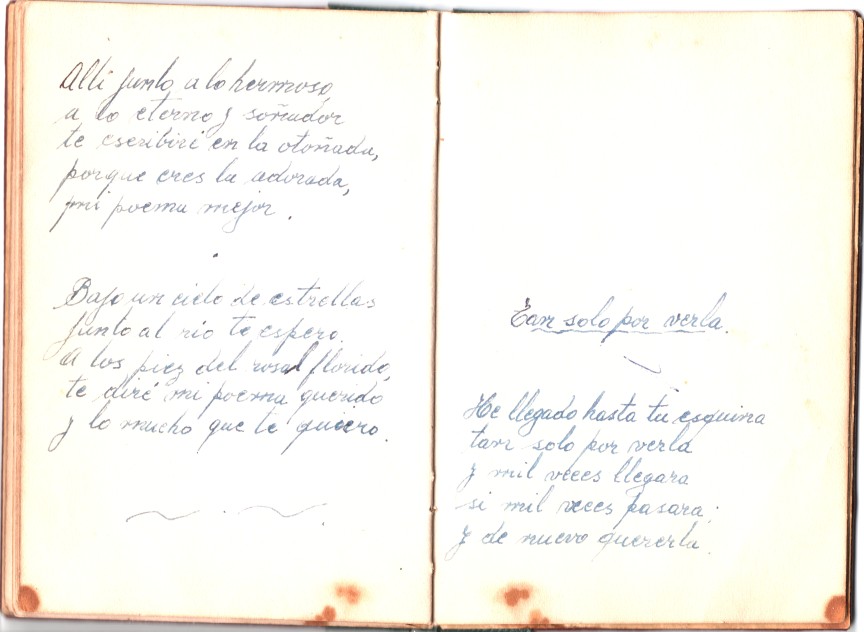 Alli junto a lo hermoso,
a lo eterno y soñador
te escribiri en la otoñada,
porque eres la adorada,
mi poema mejor.
Bajo un cielo de estrellas
junto al rio te espero.
A los piez del rosal florido,
te diré mi poema querido
y lo mucho que te quiero.
Tan solo por verla.
He llegado hasta tu esquina
tan solo por verla
y mil veces llegara
si mil veces pasara;
y de nuevo quererla.